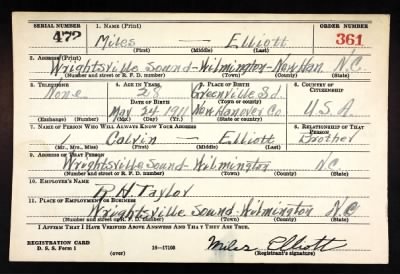 SERIAL NUMBER 1. NAME (Print) ORDER NUMBER
472 Miles — Elliott 361
(First) (Middle) (Last)
2. ADDRESS (Print)
Wrightsville Sound - Wilmington - New Han. N.C.
(Number and street or R. F. D. number) (Town) (County) (State)
3. TELEPHONE 4. AGE IN YEARS 5. PLACE OF BIRTH 6. COUNTRY OF CITIZENSHIP
None 28 Greenville Sd.
DATE OF BIRTH (Town or county)
May 24 1911 New Hanover Co. U.S.A.
(Exchange) (No.) (Mo.) (Day) (Yr.) (State or country)
7. NAME OF PERSON WHO WILL ALWAYS KNOW YOUR ADDRESS 8. RELATIONSHIP OF THAT PERSON
Calvin — Elliott Brother
(Mr., Mrs., Miss) (First) (Middle) (Last)
9. ADDRESS OF THAT PERSON
Wrightsville Sound - Wilmington NC
(Number and street or R. F. D. number) (Town) (County) (State)
10. EMPLOYER'S NAME
R H Taylor
11. PLACE OF EMPLOYMENT OR BUSINESS
Wrightsville Sound Wilmington N.C
(Number and street or R. F. D. number) (Town) (County) (State)
I AFFIRM THAT I HAVE VERIFIED ABOVE ANSWERS AND THAT THEY ARE TRUE.
REGISTRATION CARD
D. S. S. Form 1 16—17105 Miles Elliott
(over) (Registrant's signature)